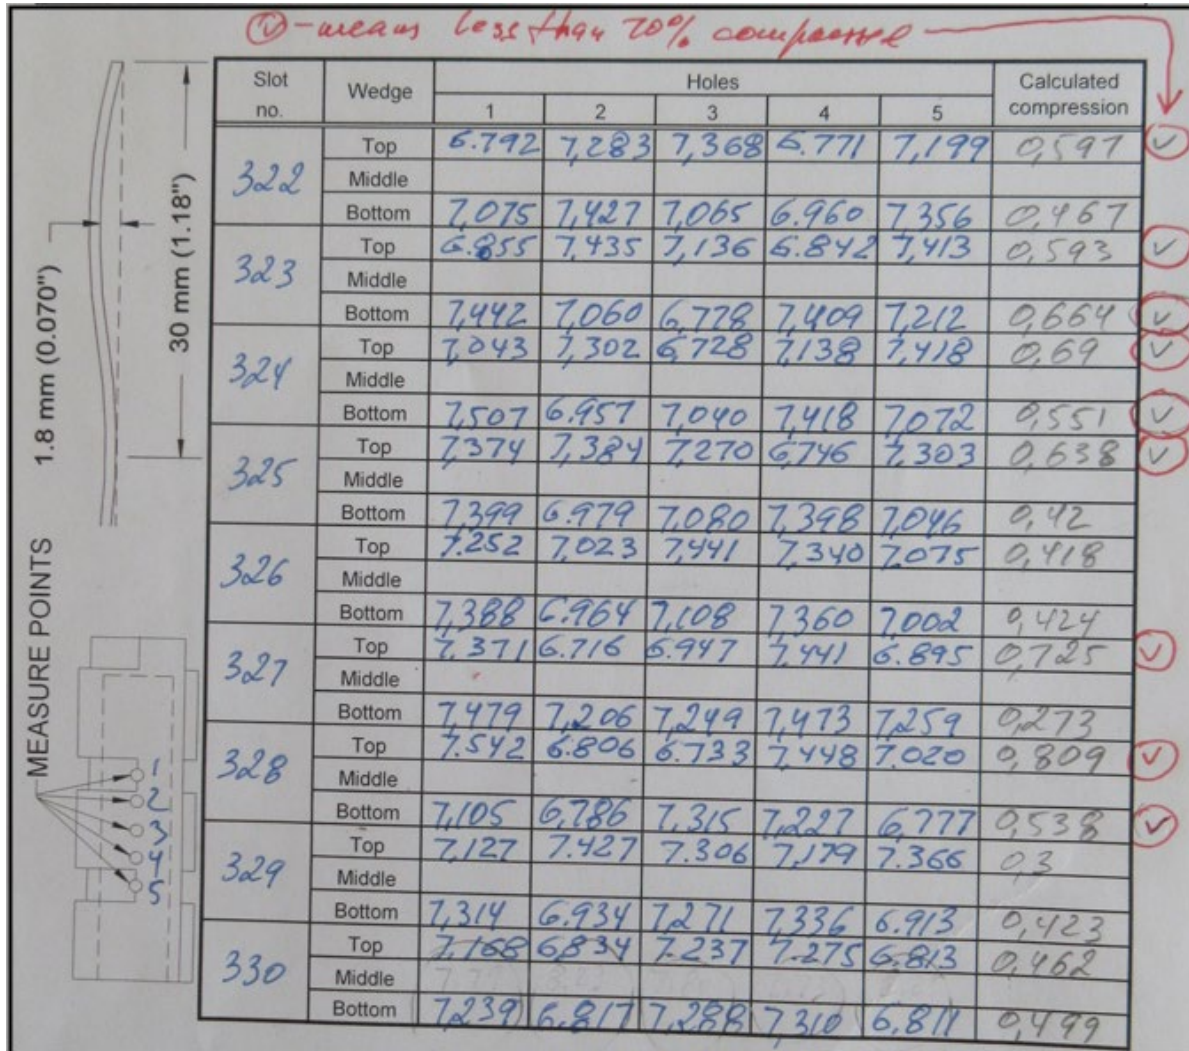 ✓ - means less than 70% compressed
Slot no. Wedge Holes Calculated compression
1 2 3 4 5
322 Top 6.792 7,283 7,368 6.771 7,199 0,597 ✓
Middle
Bottom 7,075 7,427 7,065 6.960 7,356 0,467
323 Top 6.855 7,435 7,136 6.842 7,413 0,593 ✓
Middle
Bottom 7,442 7,060 6,778 7,409 7,212 0,664 ✓
324 Top 7,043 7,302 6,728 7,138 7,418 0,69 ✓
Middle
Bottom 7,507 6.957 7,040 7,418 7,072 0,551 ✓
325 Top 7,374 7,384 7,270 6,746 7,303 0,638 ✓
Middle
Bottom 7,399 6.979 7,080 7,398 7,046 0,42
326 Top 7.252 7,023 7,441 7,340 7,075 0,418
Middle
Bottom 7,388 6.964 7,108 7,360 7,002 0,424
327 Top 7,371 6.716 6.947 7,441 6.895 0,725 ✓
Middle
Bottom 7,479 7,206 7,249 7,473 7,259 0,273
328 Top 7.542 6.806 6.733 7,448 7.020 0,809 ✓
Middle
Bottom 7,105 6,786 7,315 7,227 6,777 0,538 ✓
329 Top 7,127 7.427 7.306 7,179 7.366 0,3
Middle
Bottom 7,314 6.934 7,271 7,336 6.913 0,423
330 Top 7,168 6,834 7.237 7.275 6.813 0,462
Middle
Bottom 7,239 6,817 7,288 7,310 6,811 0,499
1.8 mm (0.070")
30 mm (1.18")
MEASURE POINTS
1
2
3
4
5